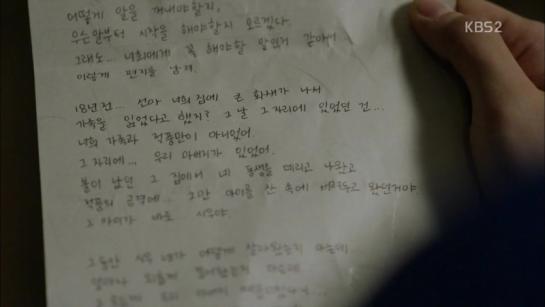 KBS2
어떻게 말을 꺼내야할지,
무슨말부터 시작을 해야할지 모르겠다.
그래도... 너희에게 꼭 해야할 말인거 같아서...
이렇게 편지를 남겨.
18년전... 선아 너희 집에 큰 화재가 나서
가족을 잃었다고 했지? 그 날 그 자리에 있었던 건...
너희 가족과 적풍만이 아니었어.
그 자리에... 우리 아버지가 있었어.
불이 났던 그 집에서 네 동생을 데리고 나왔고
적풍의 공격에... 그만 아이를 산 속에 버려두고 왔던거야
그 아이가 바로 시우야.
그동안 시우 네가 어떻게 살아왔는지 아는데
얼마나 외롭게 아는데